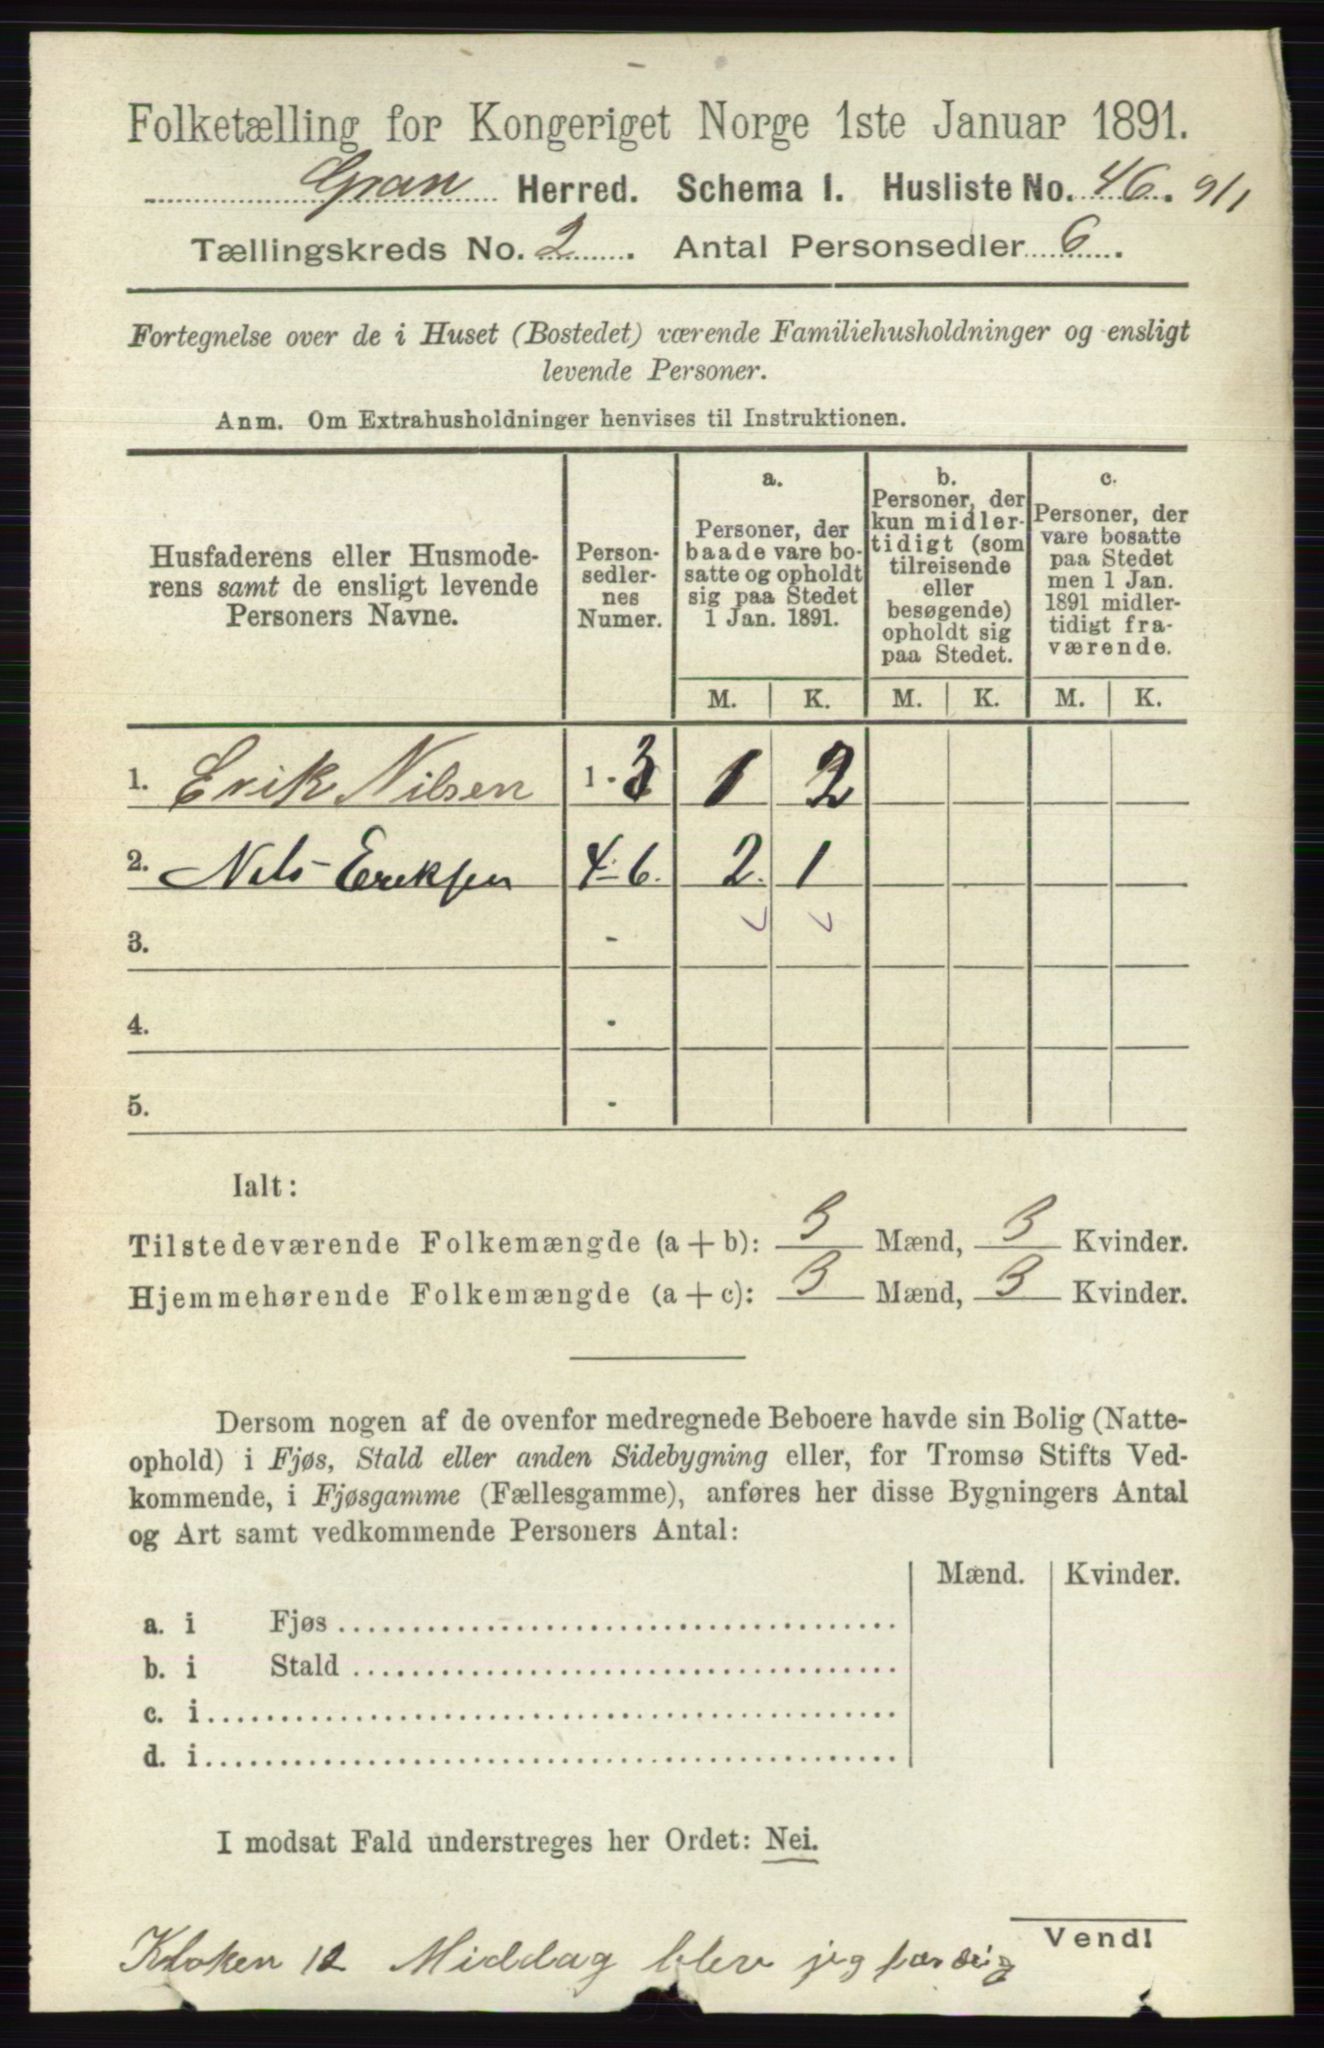 Folketælling for Kongeriget Norge 1ste Januar 1891.
Gran Herred. Schema 1. Husliste No. 46. 9/1
Tællingskreds No. 2. Antal Personsedler 6.
Fortegnelse over de i Huset (Bostedet) værende Familiehusholdninger og ensligt
levende Personer.
Anm. Om Extrahusholdninger henvises til Instruktionen.
Husfaderens eller Husmode-
rens samt de ensligt levende
Personers Navne.
Person-
sedler-
nes
Numer.
a.
Personer, der
baade vare bo-
satte og opholdt
sig paa Stedet
1 Jan. 1891.
b.
Personer, der
kun midler-
tidigt (som
tilreisende
eller
besøgende)
opholdt sig
paa Stedet.
c.
Personer, der
vare bosatte
paa Stedet
men 1 Jan.
1891 midler-
tidigt fra-
værende.
M. K. M. K. M. K.
1. Erik Nilsen 1 - 3 1 2
2. Nils Eriksen 4-6. 2. 1
3. -
4. -
5. -
Ialt:
Tilstedeværende Folkemængde (a + b): 3 Mænd, 3 Kvinder.
Hjemmehørende Folkemængde (a + c): 3 Mænd, 3 Kvinder.
Dersom nogen af de ovenfor medregnede Beboere havde sin Bolig (Natte-
ophold) i Fjøs, Stald eller anden Sidebygning eller, for Tromsø Stifts Ved-
kommende, i Fjøsgamme (Fællesgamme), anføres her disse Bygningers Antal
og Art samt vedkommende Personers Antal:
Mænd. Kvinder.
a. i Fjøs
b. i Stald
c. i
d. i
I modsat Fald understreges her Ordet: Nei.
Vend!
Kloken 12 Middag blev jeg færdig